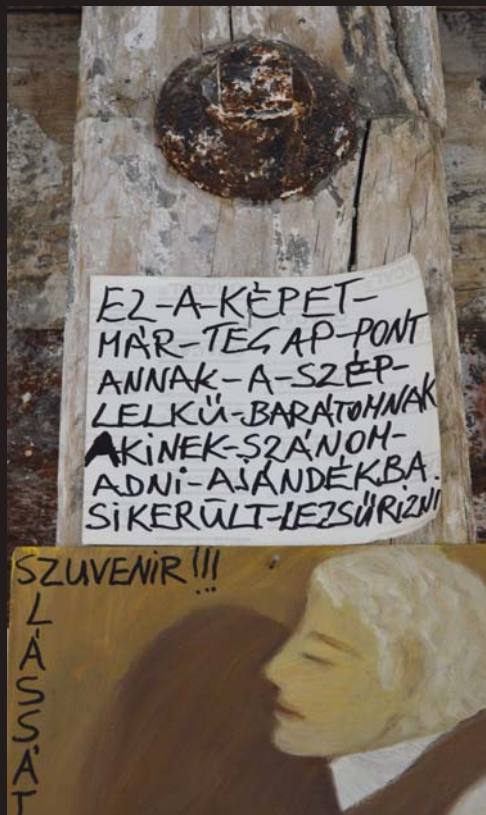 EZ-A-KÉPET-
MÁR-TEGAP-PONT
ANNAK-A-SZÉP-
LELKŰ-BARÁTOMNAK
AKiNEK-SZÁNOM-
ADNi-AJÁNDÉKBA.
SiKERÜLT-LEZSŰRiZNi
SZUVENiR!!!
L
Á
S
S
Á
T